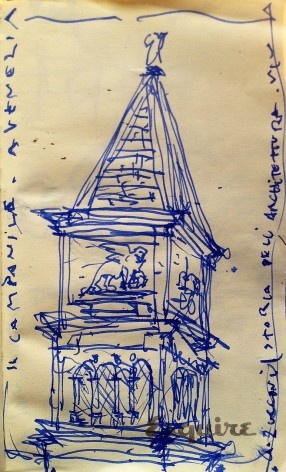 IL CAMPANILE - A VENEZIA
STORIA DELL'ARCHITETTURA.
Esquire